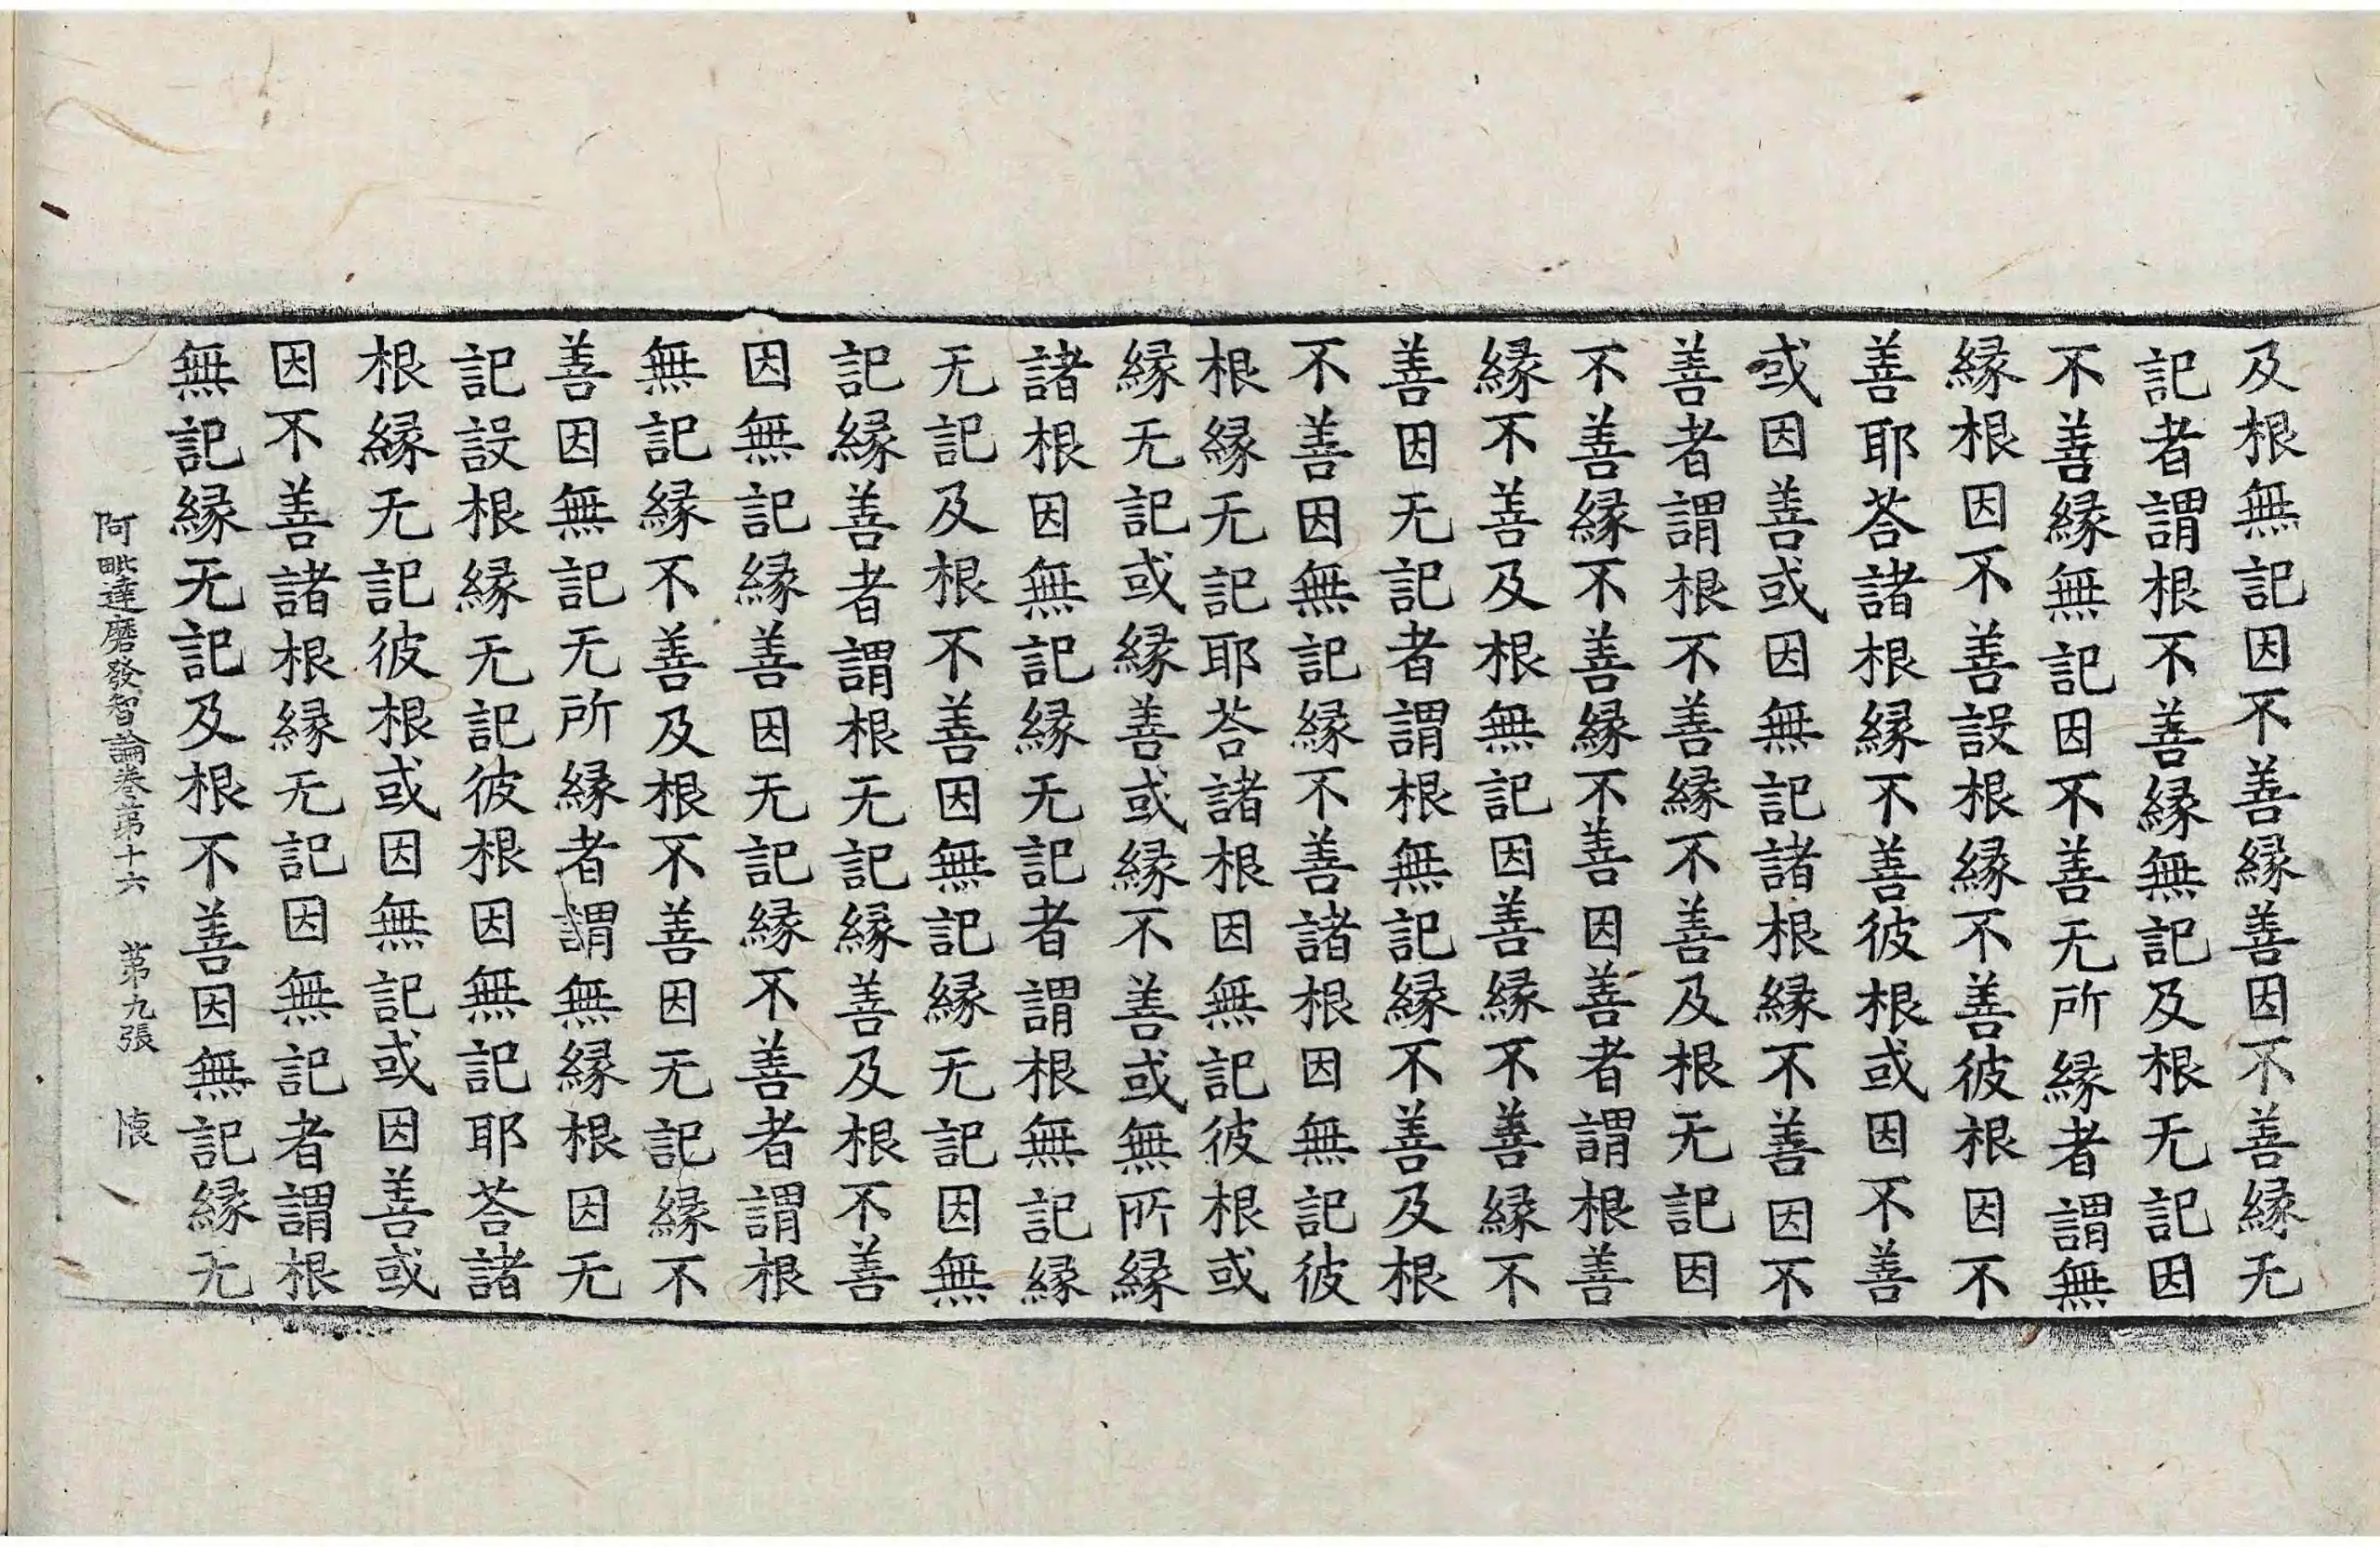 及根無記因不善縁善因不善縁无
記者謂根不善縁無記及根无記因
不善縁無記因不善无所縁者謂無
縁根因不善設根縁不善彼根因不
善耶荅諸根縁不善彼根或因不善
或因善或因無記諸根縁不善因不
善者謂根不善縁不善及根无記因
不善縁不善縁不善因善者謂根善
縁不善及根無記因善縁不善縁不
善因无記者謂根無記縁不善及根
不善因無記縁不善諸根因無記彼
根縁无記耶荅諸根因無記彼根或
縁无記或縁善或縁不善或無所縁
諸根因無記縁无記者謂根無記縁
无記及根不善因無記縁无記因無
記縁善者謂根无記縁善及根不善
因無記縁善因无記縁不善者謂根
無記縁不善及根不善因无記縁不
善因無記无所縁者謂無縁根因无
記設根縁无記彼根因無記耶荅諸
根縁无記彼根或因無記或因善或
因不善諸根縁无記因無記者謂根
無記縁无記及根不善因無記縁无
阿毗達磨發智論卷苐十六 苐九張 懐